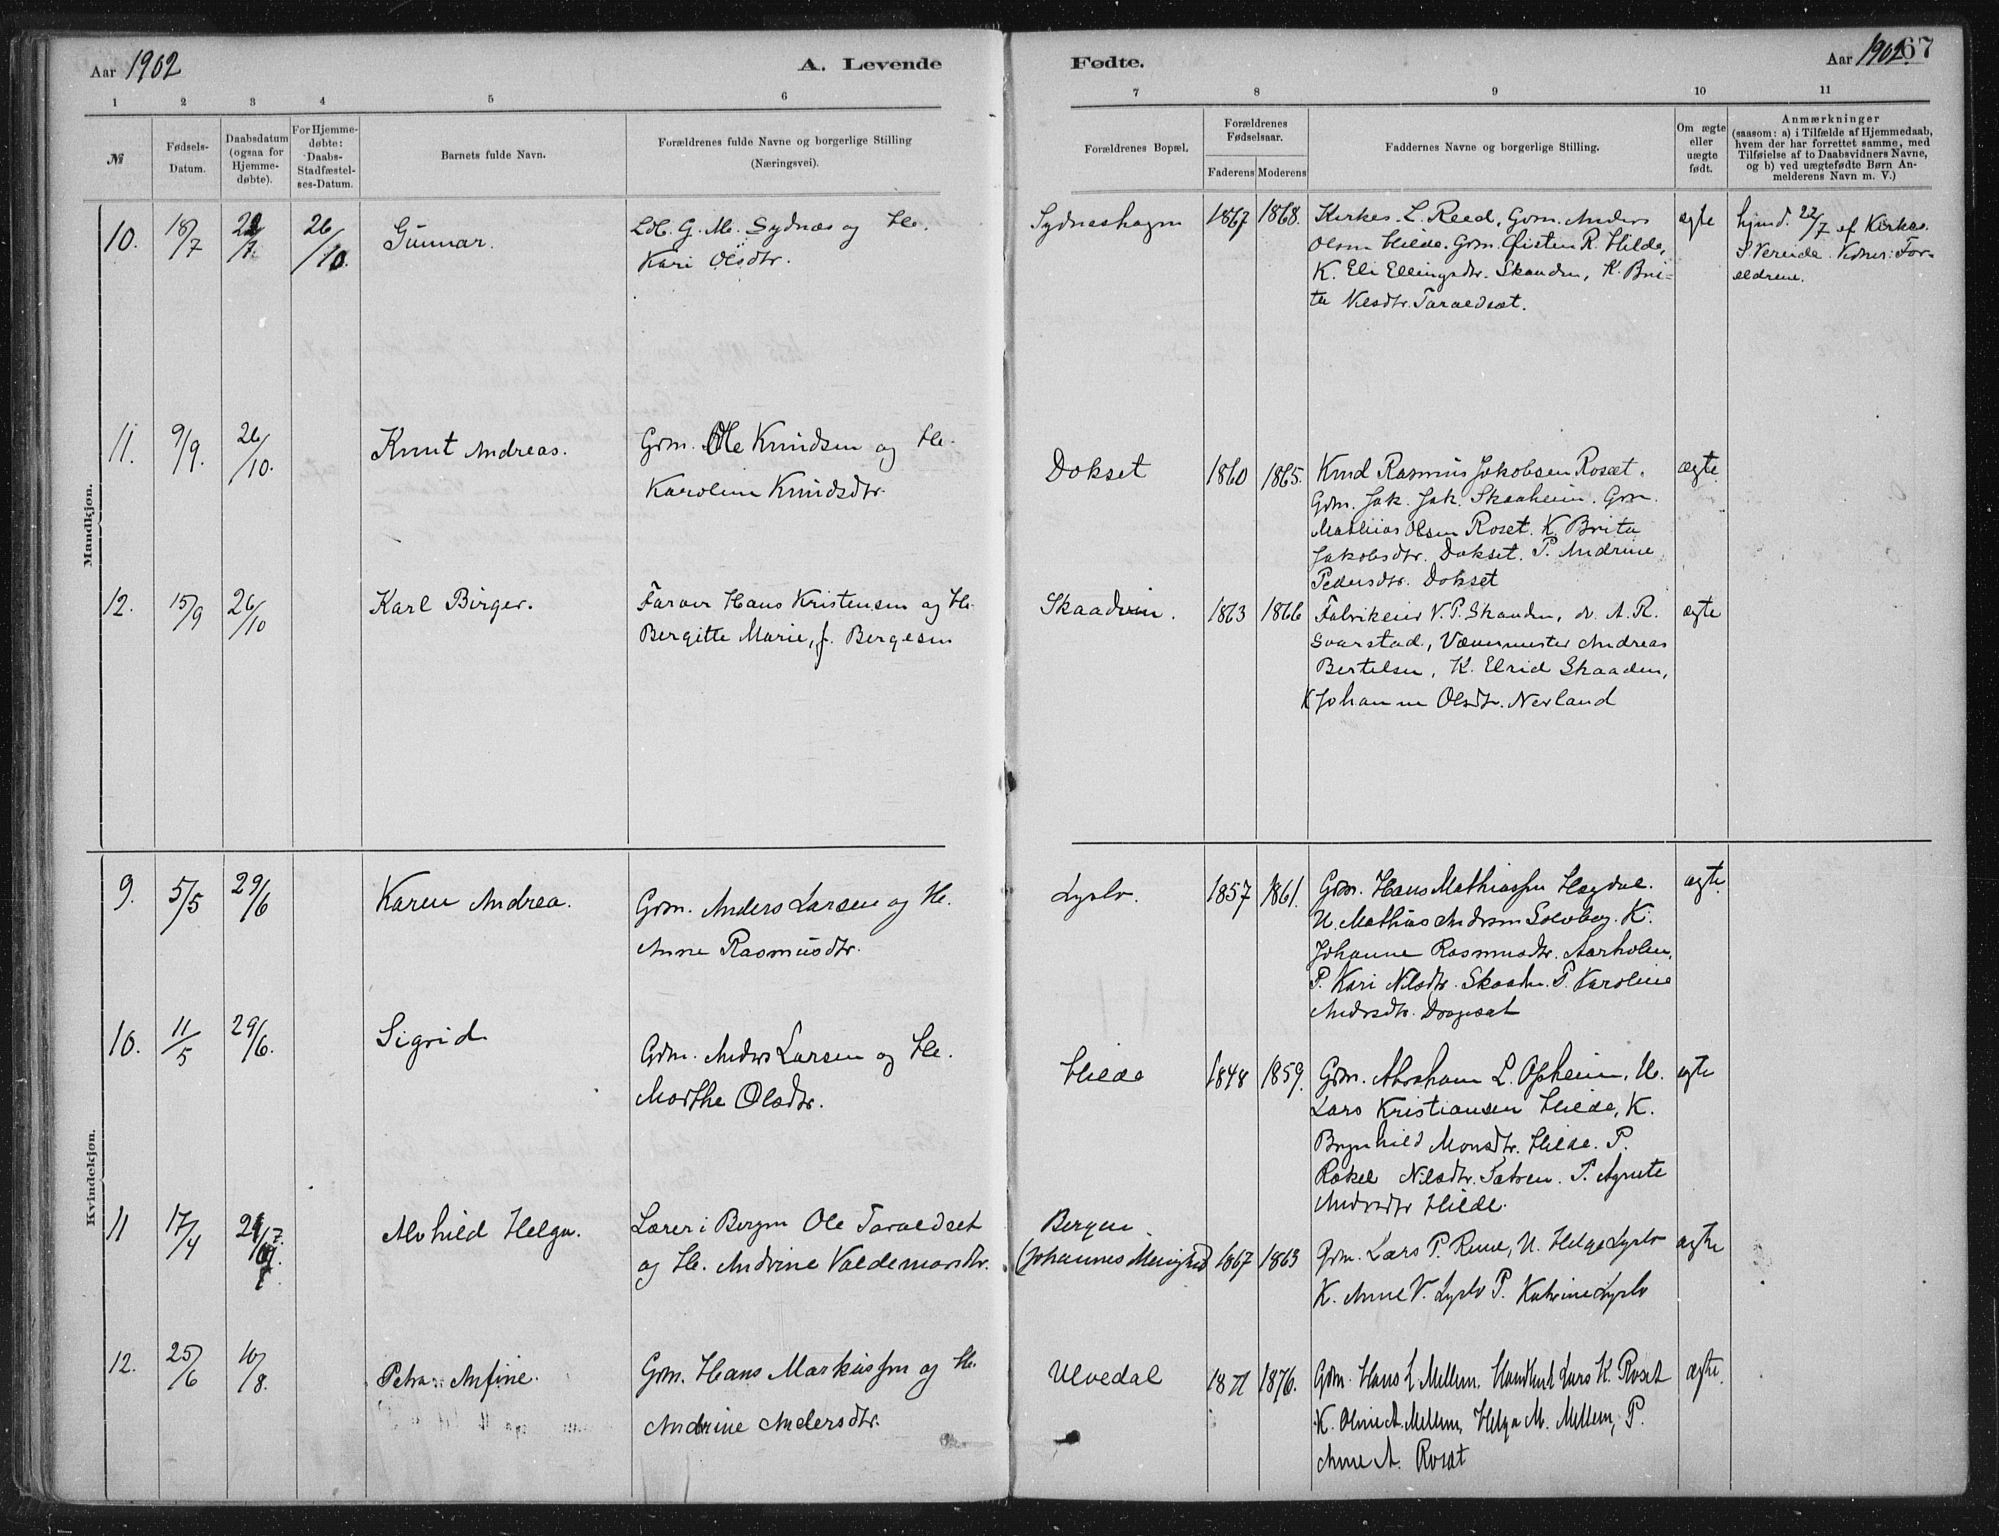 Aar 1902
A. Levende
Fødte.
Aar 1902.
67
1 2 3 4 5 6 7 8 9 10 11
№
Fødsels-
Datum.
Daabsdatum
(ogsaa for
Hjemme-
døbte).
For Hjemme-
døbte:
Daabs-
Stadfæstel-
ses-Datum.
Barnets fulde Navn.
Forældrenes fulde Navne og borgerlige Stilling
(Næringsvei).
Forældrenes Bopæl.
Forældrenes
Fødselsaar.
Faderens Moderens
Faddernes Navne og borgerlige Stilling.
Om ægte
eller
uægte
født.
Anmærkninger
(saasom: a) i Tilfælde af Hjemmedaab,
hvem der har forrettet samme, med
Tilføielse af to Daabsvidners Navne,
og b) ved uægtefødte Børn An-
melderens Navn m. V.)
Mandkjøn.
10. 18/7 22/7. 26/10. Gunnar.
G. M. Sydnæs og He.
Kari Olsdtr.
Sydneshagen 1867 1868.
Kirkes. L. Reed, Gbm. Anders
Olsen Hilde. Gbm. Øisten R. Hilde,
K. Eli Ellingsdtr. Skaaden, K. Bri-
ta Nilsdtr. Taraldset.
ægte
hjmd. 22/7 af Kirkes.
S. Vereide. Vidner: For-
ældrene.
11. 9/9. 26/10. Knut Andreas.
Gbm. Ole Knudsen og He.
Karoline Knudsdtr.
Dokset 1860 1865.
Knud Rasmus Jakobsen Roset.
Gbm. Jak. Jak. Skaaheim. Gbm.
Mathias Olsen Roset. K. Brita
Jakobsdtr. Dokset. P. Andrine
Pedersdtr. Dokset
ægte.
12. 15/9 26/10 Karl Birger.
Farver Hans Kristensen og He.
Bergitte Marie, f. Bergesen
1863 1866
Fabrikeier N. P. Skaaden, do. A. R.
Svarstad, Vævermester Andreas
Bertelsen, K. Elrid Skaaden,
K Johanne Olsdtr. Nerland
ægte
Kvindekjøn.
9. 5/5 29/6 Karen Andrea.
Gbm. Anders Larsen og He.
Anne Rasmusdtr.
Lyslo. 1857 1861.
Gbm. Hans Mathiassen Hagdal.
U. Mathias Andersen Solvberg. K.
Johanne Rasmusdtr. Aarholen,
P. Kari Nilsdtr. Skaaden. P. Karoline
Andersdtr. Dragesæt
ægte.
10. 11/5 29/6. Sigrid
Gbm. Anders Larsen og He.
Marthe Olsdtr.
Hilde 1848 1859.
Gbm. Abraham L. Opheim, U.
Lars Kristiansen Hilde, K.
Brynhild Monsdtr. Hilde. P.
Rakel Nilsdtr. Sætren. P. Agnete
Andersdtr Hilde.
ægte
11 17/4 Alvhild Helga.
Lærer i Bergen Ole Taraldset
og He. Andrine Valdemarsdtr.
Bergen
(Johannes Menighed) 1867 1863
Gbm. Lars P. Rune, U. Helge Lyslo
K. Anne V. Lyslo P. Katrine Lyslo
ægte
12. 25/6 10/8. Petra Anfine.
Gbm. Hans Markussen og He.
Andrine Andersdtr.
Ulvedal 1871 1876.
Gbm. Hans L Mellem, Handlende Lars K. Roset
K. Oline A. Mellem, Helga M. Mellem, P.
Anne A. Roset
ægte.